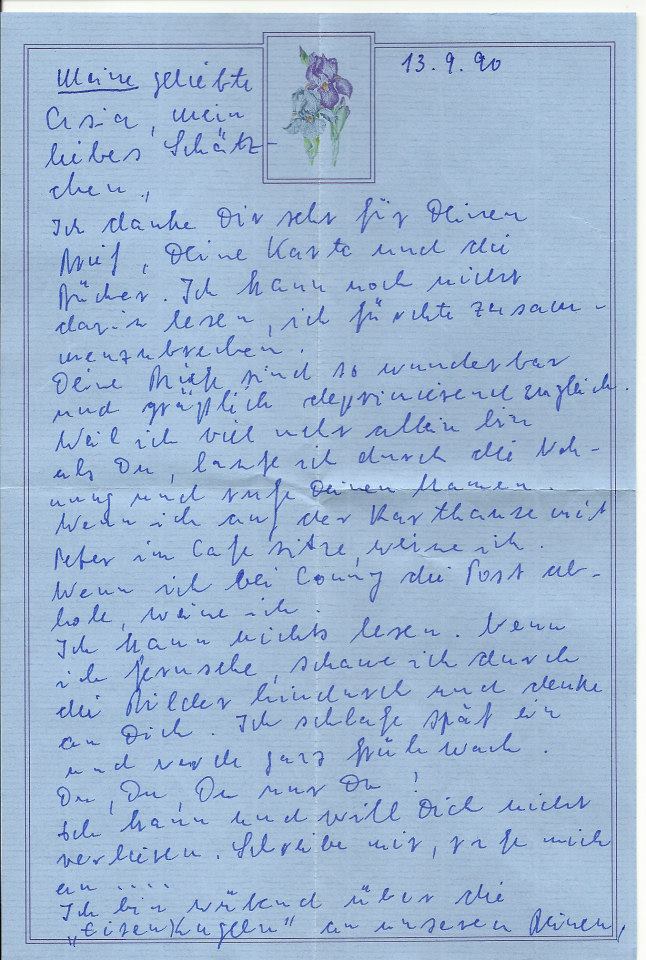 13.9.90
Meine geliebte
Asia, mein
liebes Schätz-
chen,
Ich danke Dir sehr für Deinen
Brief, Deine Karte und die
Bücher. Ich kann noch nicht
darin lesen, ich fürchte zusam-
menzubrechen.
Deine Briefe sind so wunderbar
und gräßlich deprimierend zugleich.
Weil ich viel mehr allein bin
als Du, laufe ich durch die Woh-
nung und rufe Deinen Namen.
Wenn ich auf der Karthause mit
Peter im Cafe sitze, weine ich.
Wenn ich bei Conny die Post ab-
hole, weine ich.
Ich kann nichts lesen. Wenn
ich fernsehe, schaue ich durch
die Bilder hindurch und denke
an Dich. Ich schlafe spät ein
und werde ganz früh wach.
Du, Du, Du nur Du!
Ich kann und will Dich nicht
verlieren. Schreibe mir, rufe mich
an ....
Ich bin wütend über die
"Eisenkugeln" an unseren Beinen,